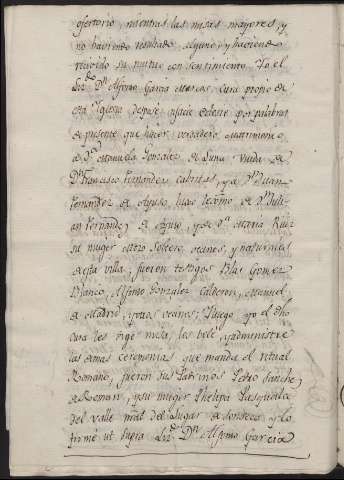 ofertorio, mientras las misas mayores, y
no haviendo resultado alguno, y haviendo
recivido su mutuo consentimiento Yo el
Lizdo Dn Alfonso Garcia cura propio de
esta Iglesia despose, y case por palabras
de presente que hacen verdadero Matrimonio
a Da Manuela Gonzalez de Luna viuda de
Dn Francisco Fernandez Cabrales, y a Dn Juan
Fernandez de Ayuso, hijo lexmo de Dn Juli-
an Fernandez de Ayuso, y de Da Maria Ruiz
su muger Mozo soltero, vecinos, y naturales
de esta villa, fueron testigos Blas Gomez
Blanco, Alfonso Gonzalez Calderon, Manuel
de Madrid, y otros vecinos; Y luego yo el dho
cura les dige misa, les vele, y administre
las demas ceremonias que manda el ritual
Romano, fueron sus Patrinos Pedro Sanche
de Roman, y su muger Phelipa Pasquala
del valle nral del Lugar de Sonseca y lo
firme ut supra Lizdo Dn Alfonso Garcia